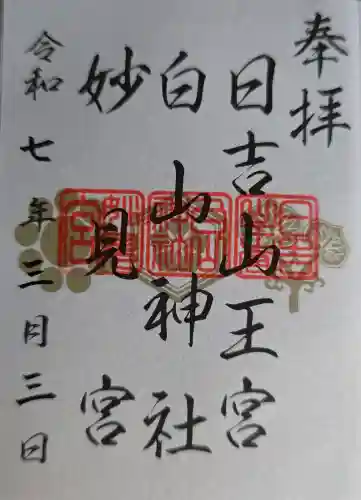 奉拝
日吉山王宮
白山神社
妙見宮
令和七年三月三日